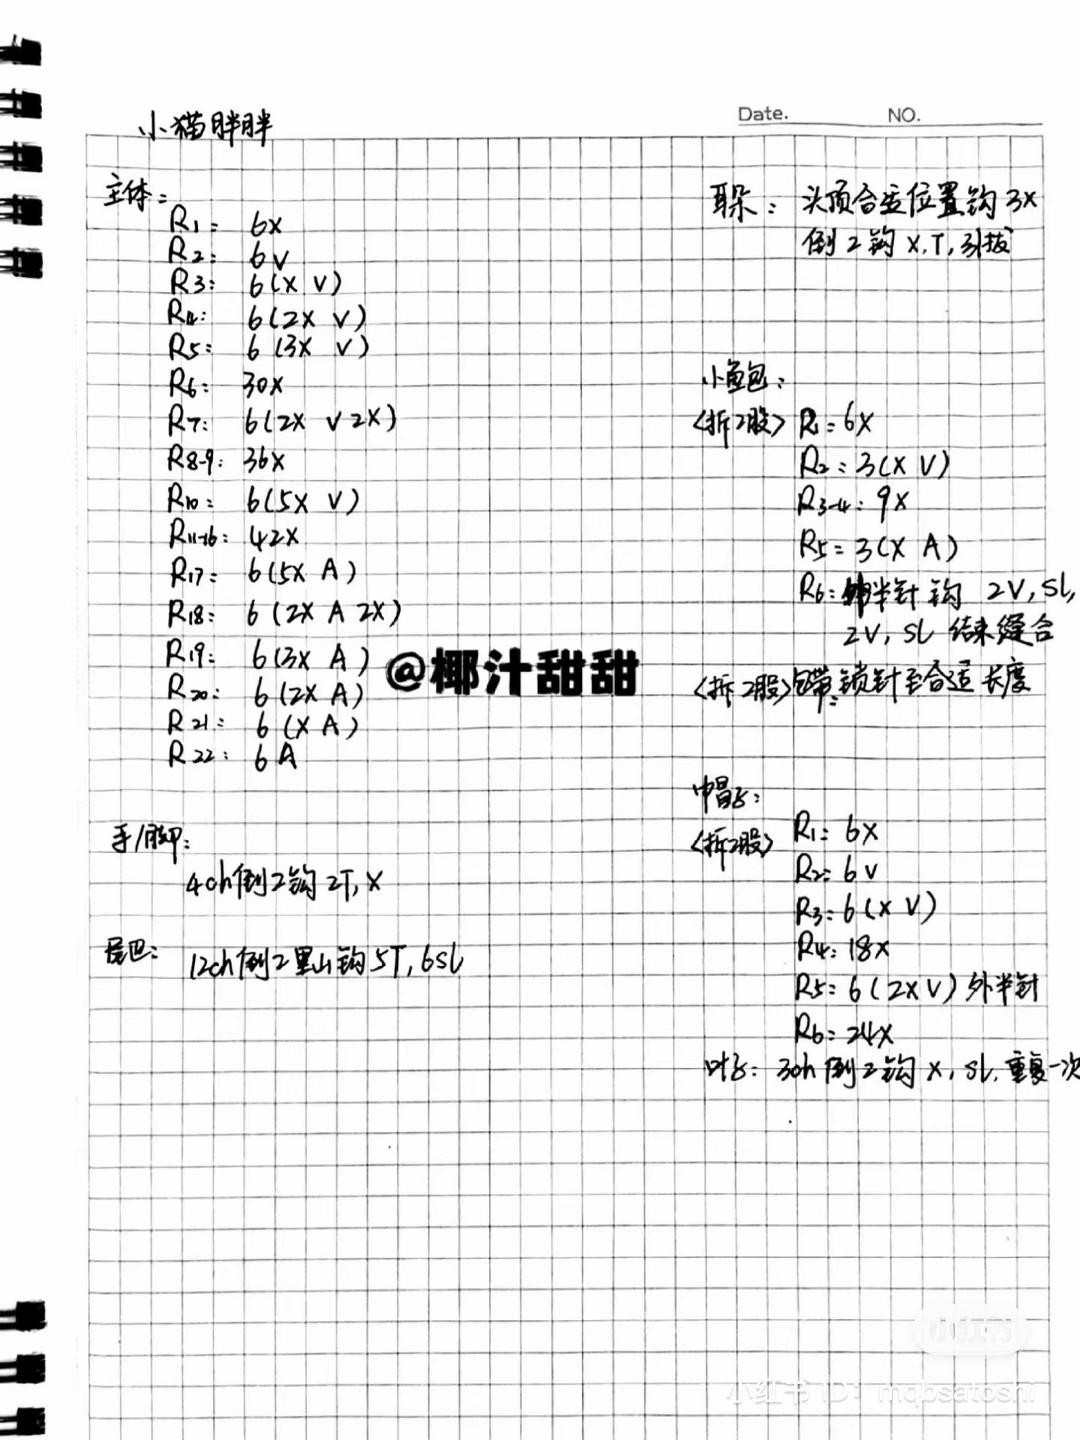 Date.
NO.
小猫胖胖
主体:
R1: 6X
R2: 6V
R3: 6(X V)
R4: 6(2X V)
R5: 6(3X V)
R6: 30X
R7: 6(2X V 2X)
R8-9: 36X
R10: 6(5X V)
R11-16: 42X
R17: 6(5X A)
R18: 6(2X A 2X)
R19: 6(3X A)
R20: 6(2X A)
R21: 6(X A)
R22: 6A
手/脚:
4ch倒2钩2T,X
尾巴: 12ch倒2里山钩5T,6SL
耳朵: 头顶合适位置钩3X
倒2钩X,T,引拔
小鱼包:
<拆2股> R1: 6X
R2: 3(X V)
R3-4: 9X
R5: 3(X A)
R6: 外半针钩 2V,SL,
2V,SL 结束缝合
<拆2股>包带:锁针至合适长度
帽子:
<拆2股> R1: 6X
R2: 6V
R3: 6(X V)
R4: 18X
R5: 6(2X V)外半针
R6: 24X
叶子: 3ch倒2钩X,SL,重复一次
@椰汁甜甜
小红书
小红书 ID: mqbsatoshi